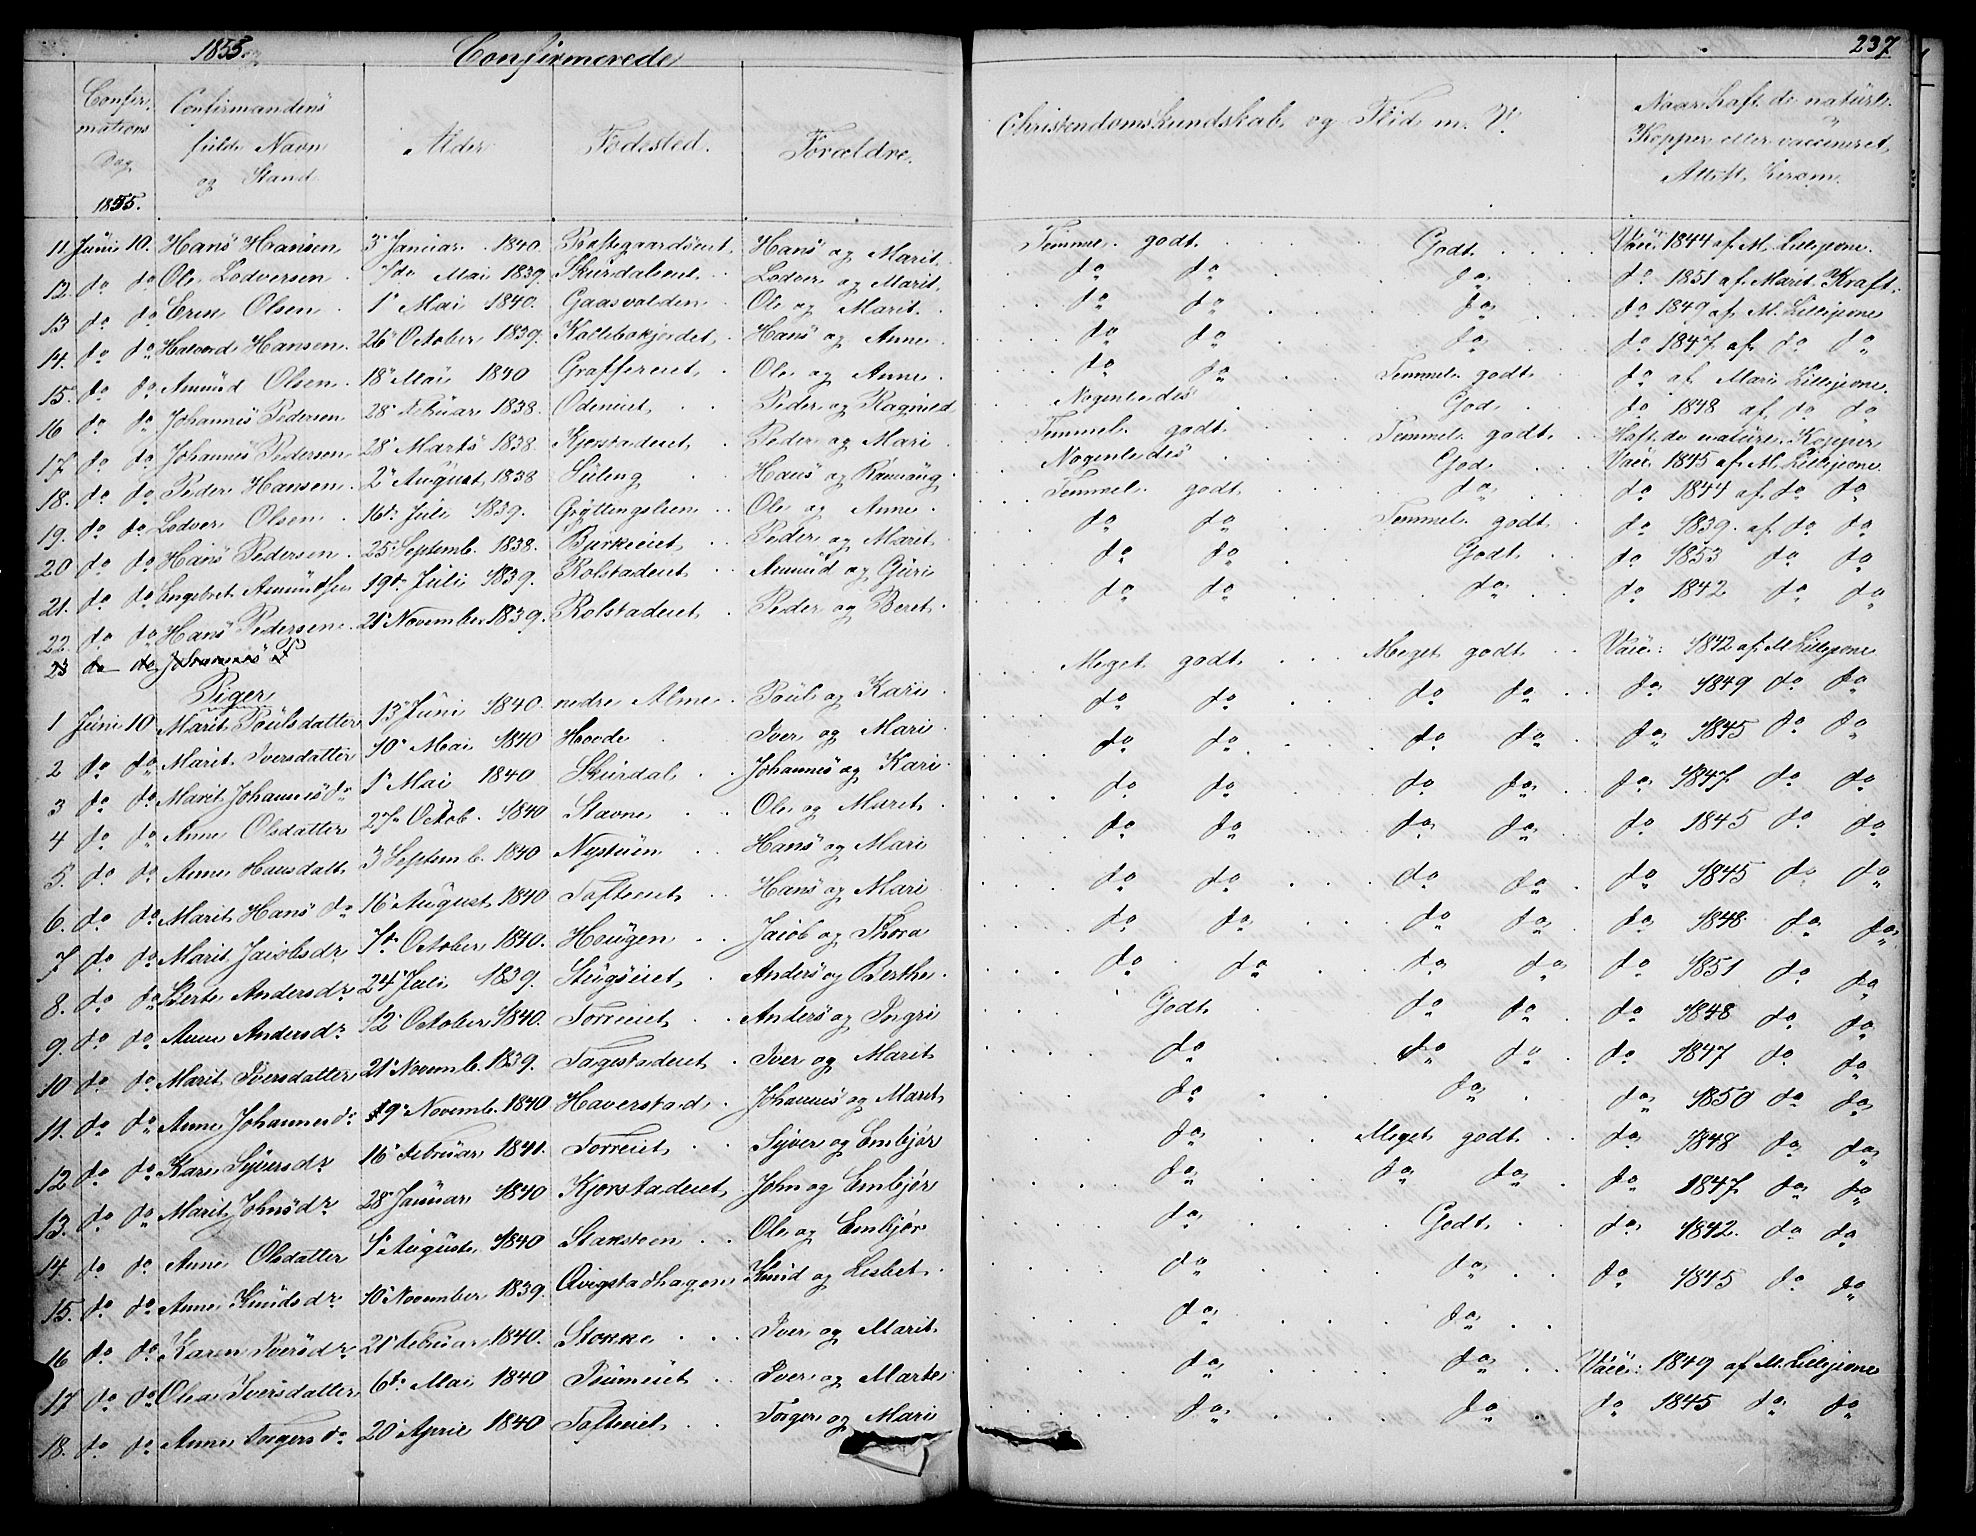 1855. Confirmerede 237.
Confirmations Dag 1855. Confirmandens fulde Navn og Stand Alder Fødested. Forældre. Christendoms Kundskab og Flid m. V. Naar haft de naturl. Kopper eller vaccineret, Attest herom.
11. Juni 10. Hans Hansen 3 Januar 1840. Hans og Marit Temmel. godt Godt Vacc: 1844 af M. Lillejone.
12. do do Ole Lodversen 7de Mai 1839. Skurdaleiet Lodver og Marit do do do do 1851 af Marit Kraft.
13 do do Erik Olsen 1 Mai 1840. Ole og Marit. do do do do 1849 af M. Lillejone
14. do do Halvord Hansen. 26 October 1839. Hans og Anne do do do do 1847 af do do
15. do do Amund Olsen 18 Mai 1840 Graffereiet Ole og Anne do do Temmel. godt do af Marie Lillejone
16 do do Johannes Pedersen 28 Februar 1838. Odeneiet Peder og Ragnild Nogenledes God do 1848 af do do
17. do do Johannes Pedersen 28 Marts 1838. Kjøstadeiet Peder og Mari Temmel. godt Temmel. godt Haft de nature. Kopper
18. do do Peder Hansen 2 August 1838 Hans og Rannaug Nogenledes God Vacc: 1845 af M. Lillejone
19. do do Lodver Olsen 16de Juli 1839. Gryttingslien Ole og Anne Temmel. godt do 1844 af do do
20 do do Hans Pedersen 25 Septemb. 1838. Bjerkeeiet Peder og Marit do do Temmel. godt do 1839. af do do
21. do do Engebret Amundsen 19de Juli 1839. Rolstadeiet Amund og Guri do do Godt do 1853 do do
22. do do Hans Pedersen 21 November 1839. Rolstadeiet Peder og Beret do do do do 1842 do do
23 do do Johannes P
Piger
1 Juni 10 Marit Poulsdatter 13 Juni 1840. nedre Alme Poul og Kari Meget godt Meget godt Vacc: 1842 af M Lillejone
2 do do Marit Iversdatter 10 Mai 1840 Hovde Iver og Mari do do do do do 1849 do do
3 do do Marit Johannesdr 1 Mai 1840 Skurdal Johannes og Kari do do do do do 1845 do do
4 do do Anne Olsdatter 27 Octob. 1840 Stavne Ole og Marit do do do do do 1847 do do
5. do do Anne Hansdatt 3 Septemb. 1840 Nystuen Hans og Mari do do do do do 1845 do do
6. do do Marit Hans dr 16 August 1840 Tofteeiet Hans og Mari do do do do do 1845 do do
7 do do Marit Jacobsdr 7de October 1840. Haugen Jacob og Thora do do do do do 1848. do do
8. do do Berte Andersdr 24 Juli 1839. Stugseiet Anders og Berthe do do do do do 1851 do do
9. do do Anne Andersdr 12 October 1840. Torreeiet Anders og Ingri Godt do do do 1848 do do
10 do do Marit Iversdatter 21 Novemb. 1839. Fagestadeiet Iver og Marit do do do do 1847 do do
11. do do Anne Johannesdr 19 Novemb. 1840 Haverstad Johannes og Marit do do do 1850 do do
12 do do Kari Syversdr 16 Februar 1841. Torreeiet Syver og Embjør do Meget godt do 1848 do do
13. do do Marit Johnsdr 28 Januar 1840 Kjorstadeiet John og Embjør do do do do 1847 do do
14. do do Anne Olsdatter 1 August 1840 Staksteen Ole og Embjør do Godt do 1842. do do
15. do do Anne Knudsdr 10 November 1839 Qvigstadhagen Knud og Lisbet do do do 1845 do do
16 do do Karen Iversdr 21 Februar 1840. Stokke Iver og Marit do do
17 do do Olea Iversdatter 6te Mai 1840 Iver og Marte do do Vacc: 1849 af M. Lillejone
18. do do Anne Torgersdr 20 April 1840 Tofteeiet Torger og Mari do do do 1845 do do